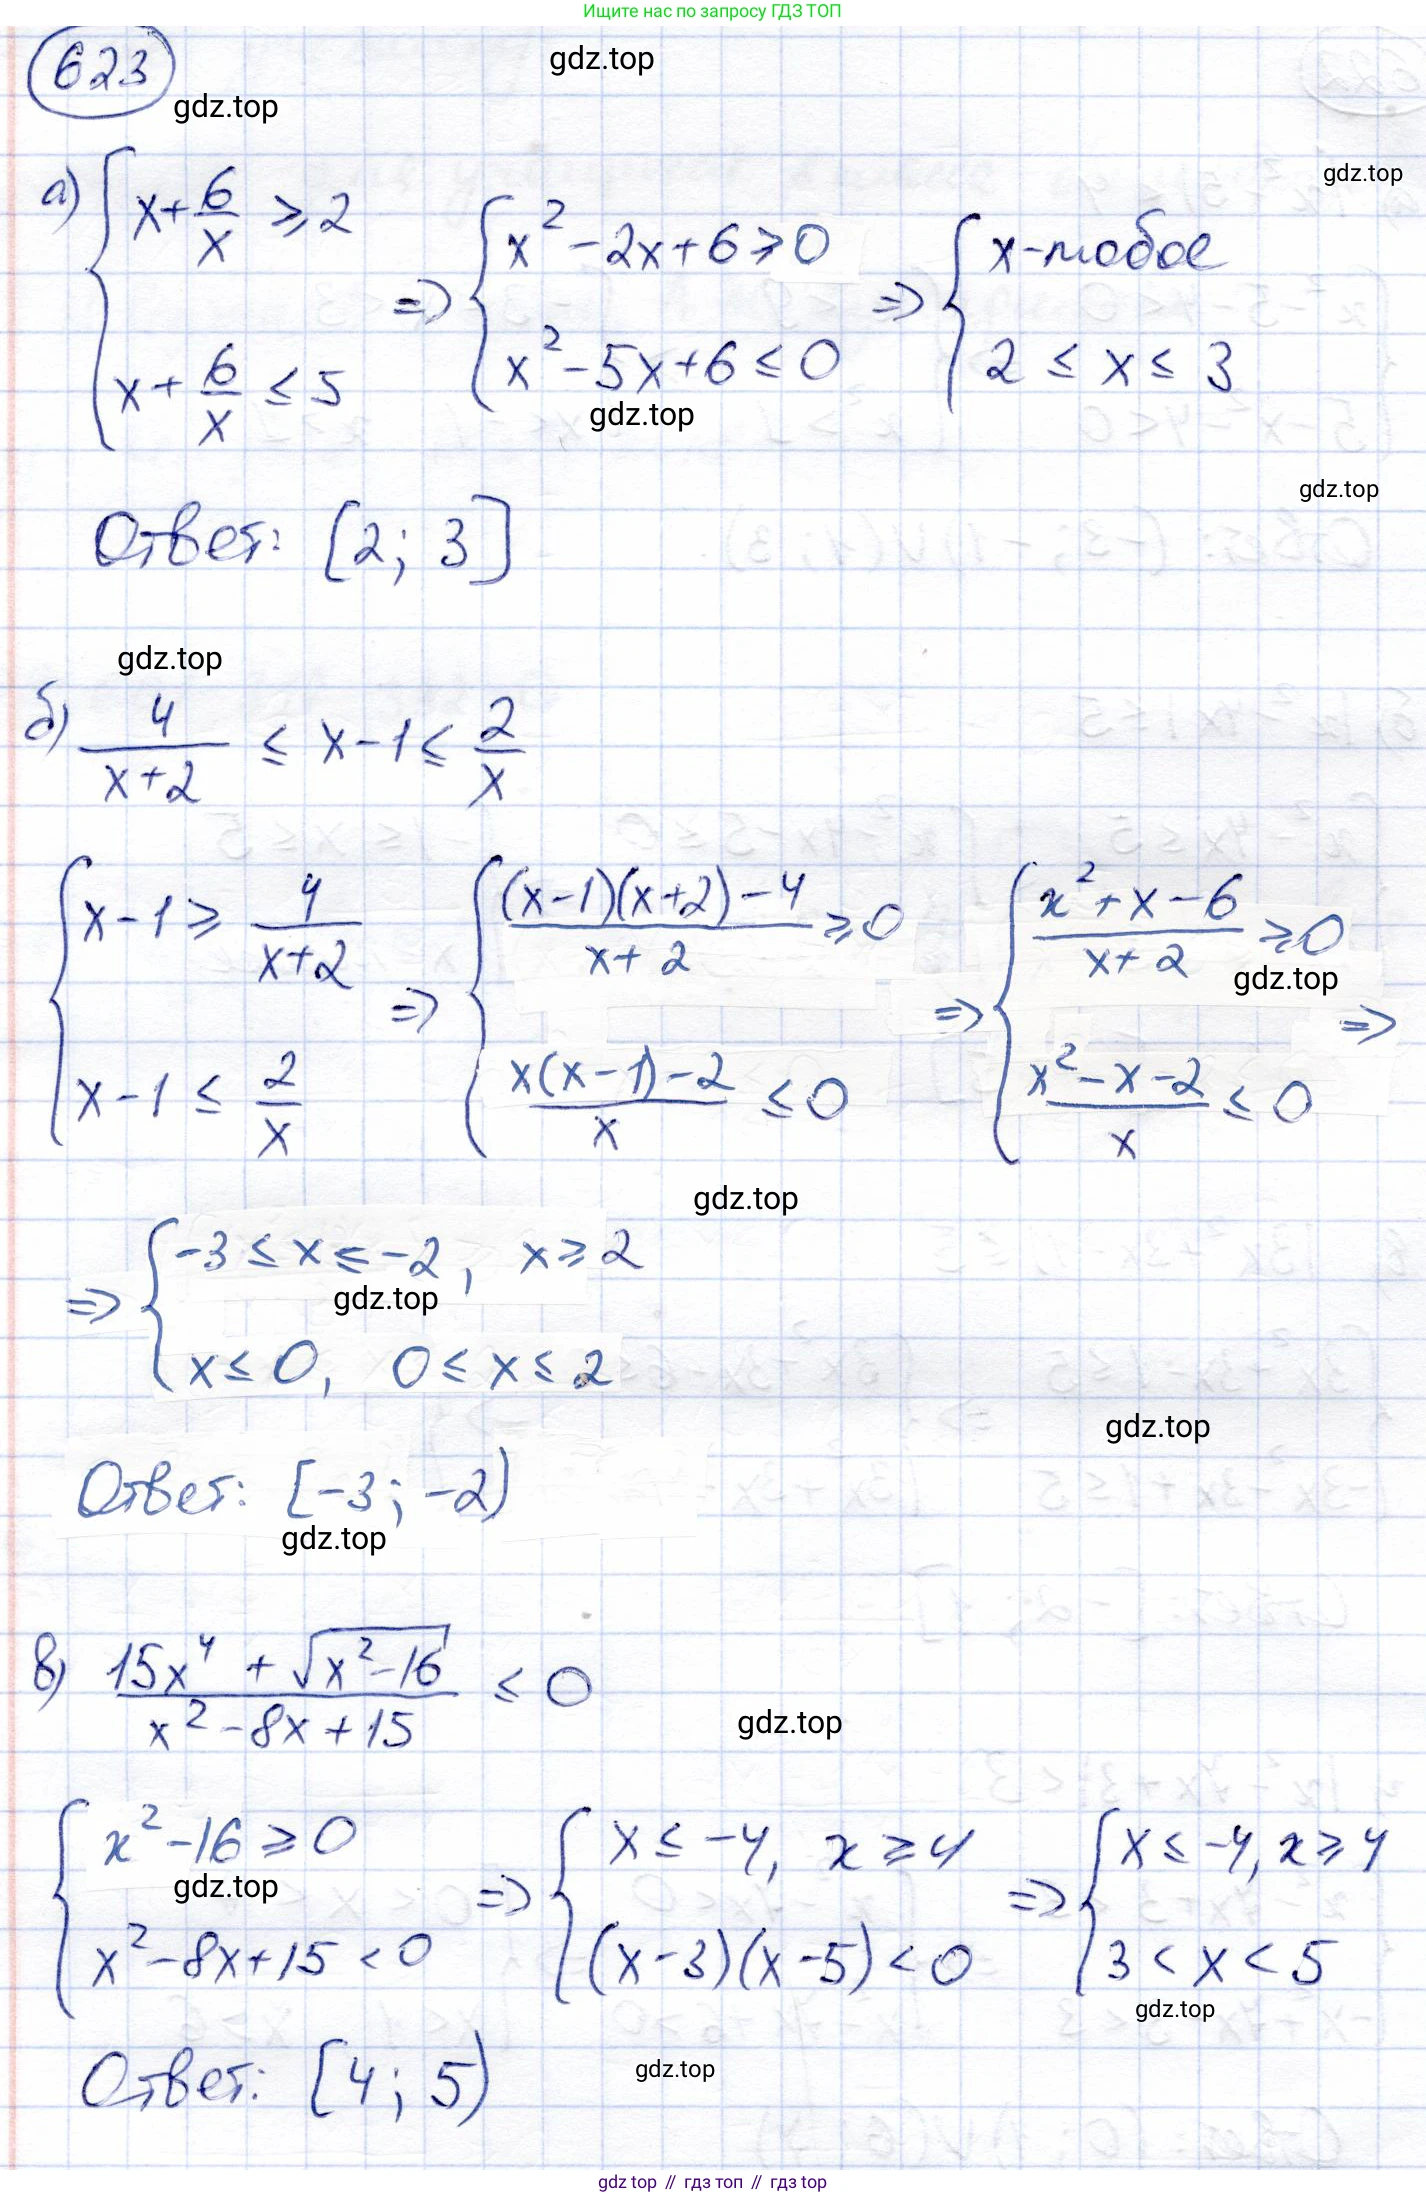 Ищите нас по запросу ГДЗ ТОП
623
gdz.top
gdz.top
gdz.top
а) { x + 6/x ≥ 2 ; x + 6/x ≤ 5 => { x² - 2x + 6 ≥ 0 ; x² - 5x + 6 ≤ 0 => { x - любое ; 2 ≤ x ≤ 3
gdz.top
gdz.top
Ответ: [2; 3]
gdz.top
б) 4/(x+2) ≤ x - 1 ≤ 2/x
{ x - 1 ≥ 4/(x+2) ; x - 1 ≤ 2/x => { ((x-1)(x+2) - 4)/(x+2) ≥ 0 ; (x(x-1) - 2)/x ≤ 0 => { (x² + x - 6)/(x+2) ≥ 0 ; (x² - x - 2)/x ≤ 0 =>
gdz.top
gdz.top
=> { -3 ≤ x ≤ -2, x ≥ 2 ; x ≤ 0, 0 ≤ x ≤ 2
gdz.top
gdz.top
Ответ: [-3; -2)
gdz.top
в) (15x⁴ + √(x² - 16))/(x² - 8x + 15) ≤ 0
gdz.top
{ x² - 16 ≥ 0 ; x² - 8x + 15 < 0 => { x ≤ -4, x ≥ 4 ; (x - 3)(x - 5) < 0 => { x ≤ -4, x ≥ 4 ; 3 < x < 5
gdz.top
gdz.top
Ответ: [4; 5)
gdz.top
gdz top // гдз топ // гдз top